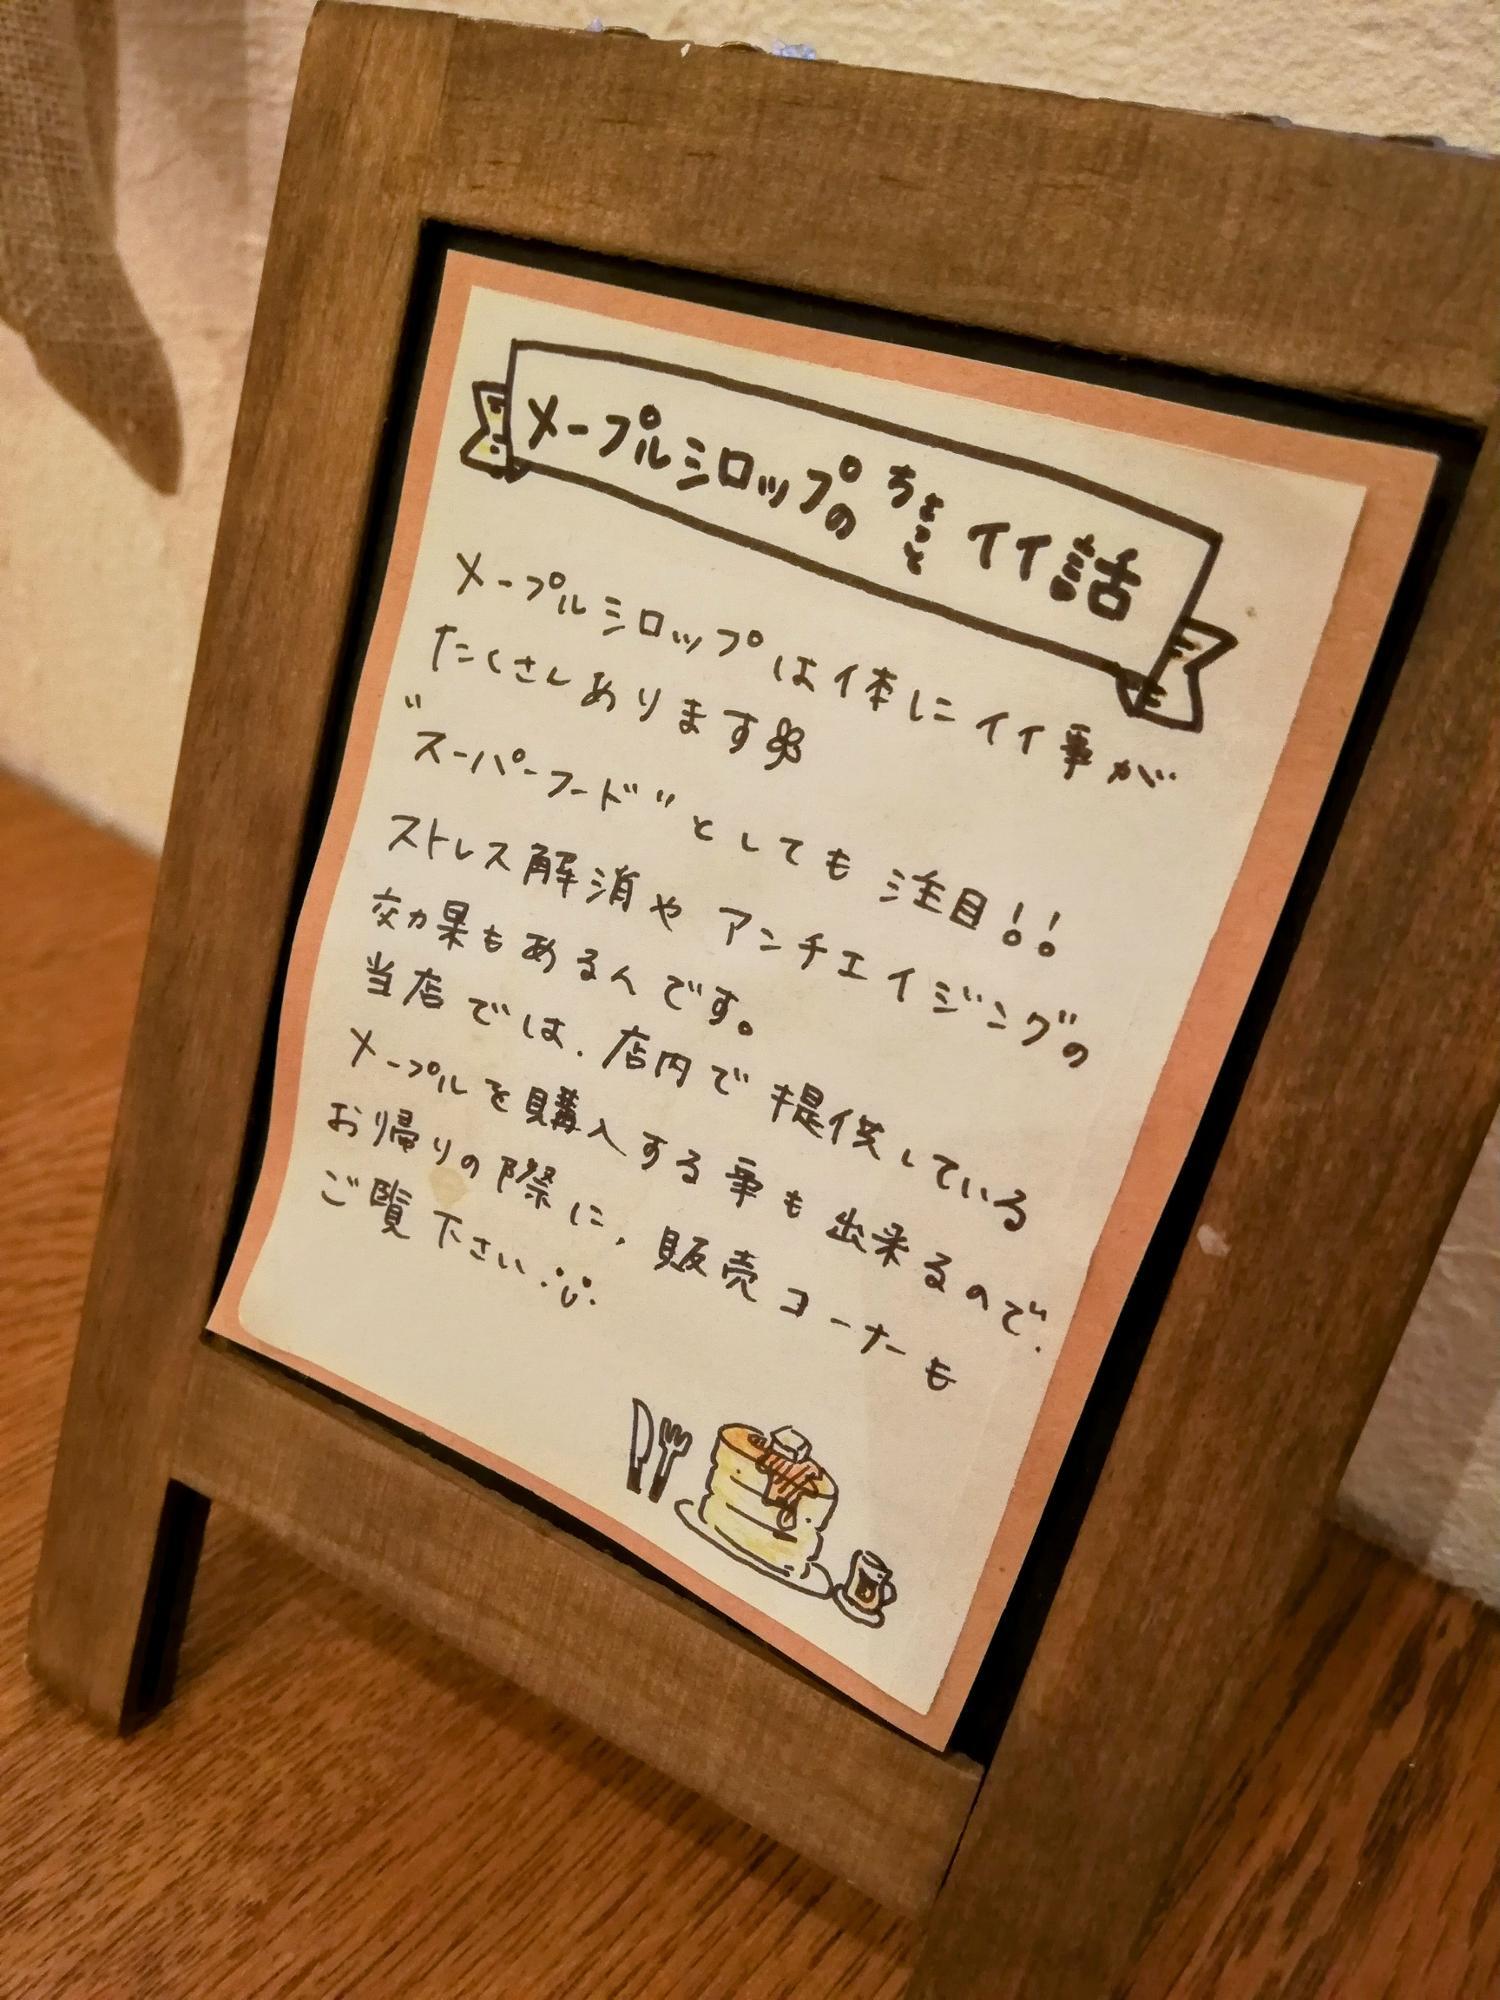 メープルシロップのちょっとイイ話
メープルシロップは体にイイ事が
たくさんあります
"スーパーフード"としても注目!!
ストレス解消やアンチエイジングの
効果もあるんです。
当店では、店内で提供している
メープルを購入する事も出来るので、
お帰りの際に、販売コーナーも
ご覧下さい